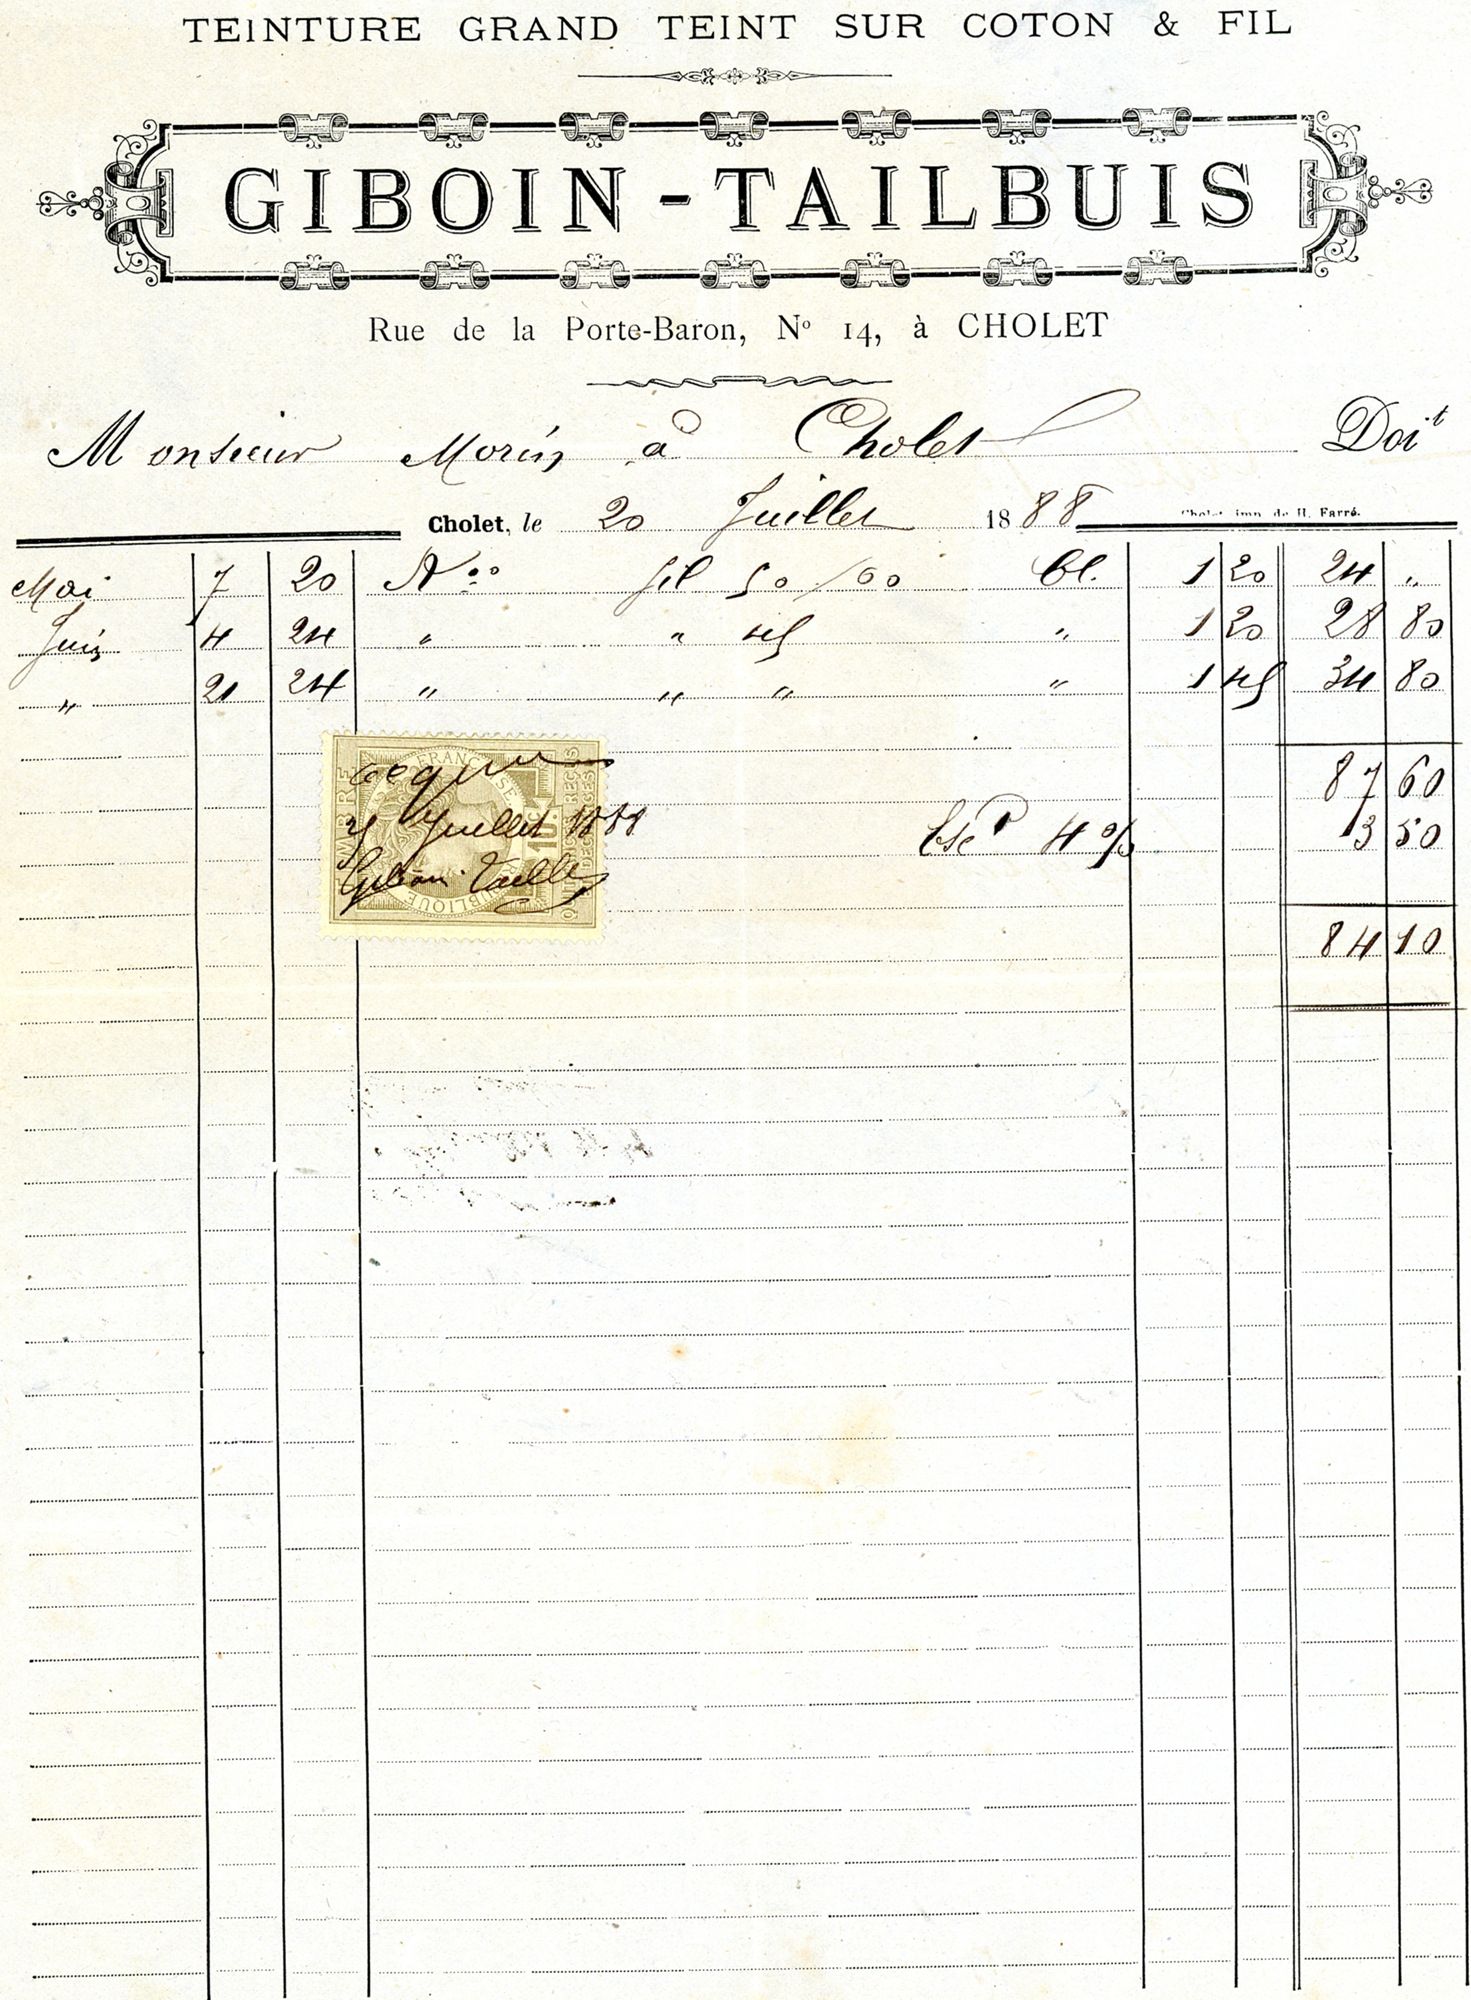 TEINTURE GRAND TEINT SUR COTON & FIL
GIBOIN - TAILBUIS
Rue de la Porte-Baron, No 14, à CHOLET
Monsieur Morin à Cholet Doit
Cholet, le 20 Juillet 1888
Cholet, imp. de H. Farré.
Mai 7 20 fil 50/00 Bl. 1 20 24 "
Juin 4 24 " " 45 " 1 20 28 80
" 21 24 " " " " 1 45 34 80
87 60
4 % 3 50
84 10
TIMBRE
RÉPUBLIQUE FRANÇAISE
10 c.
QUITTANCES REÇUS
Juillet 1888